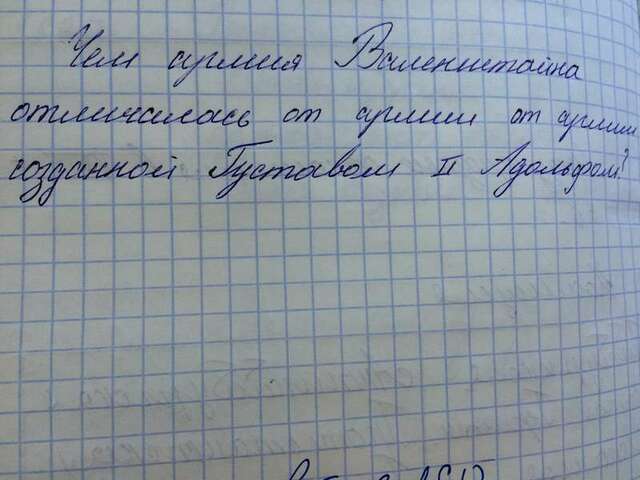 Чем армия Валенштайна
отличалась от армии от армии
созданной Густавом II Адольфом?